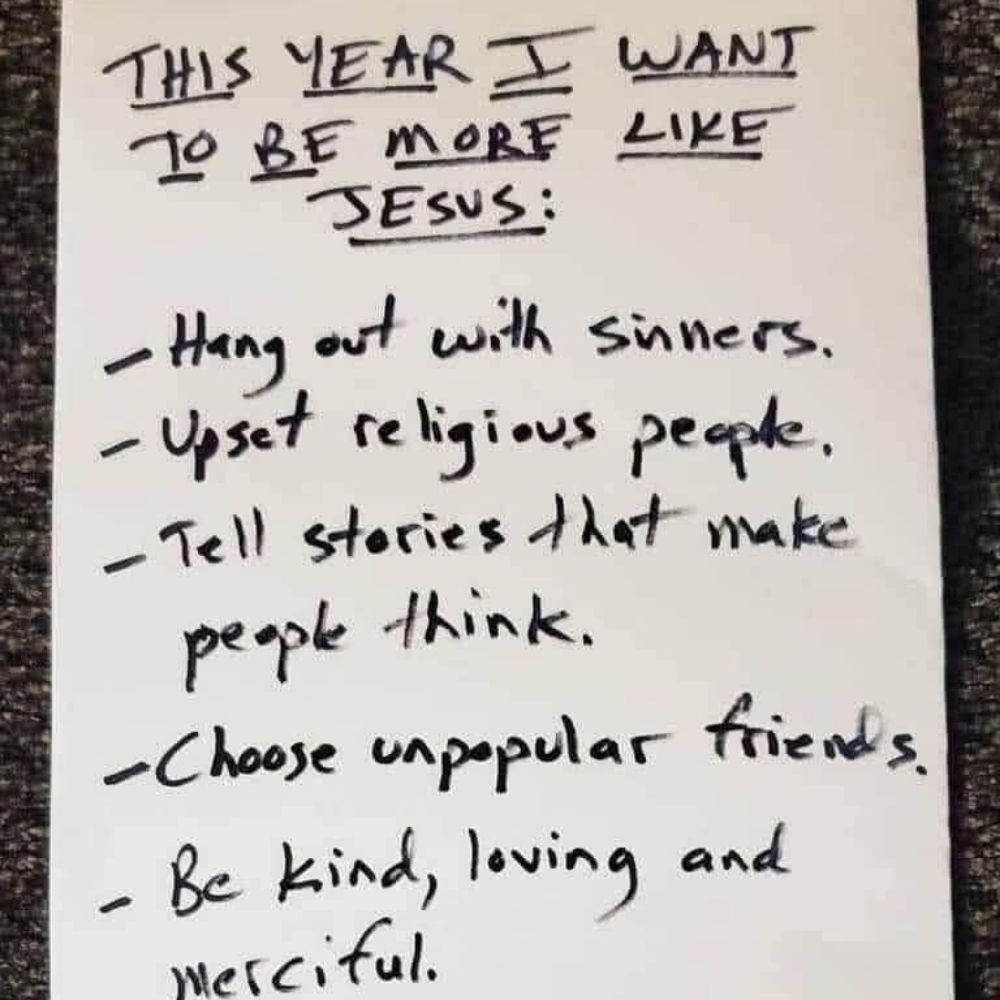 THIS YEAR I WANT
TO BE MORE LIKE
JESUS:
- Hang out with sinners.
- Upset religious people.
- Tell stories that make
people think.
- Choose unpopular friends.
- Be kind, loving and
merciful.